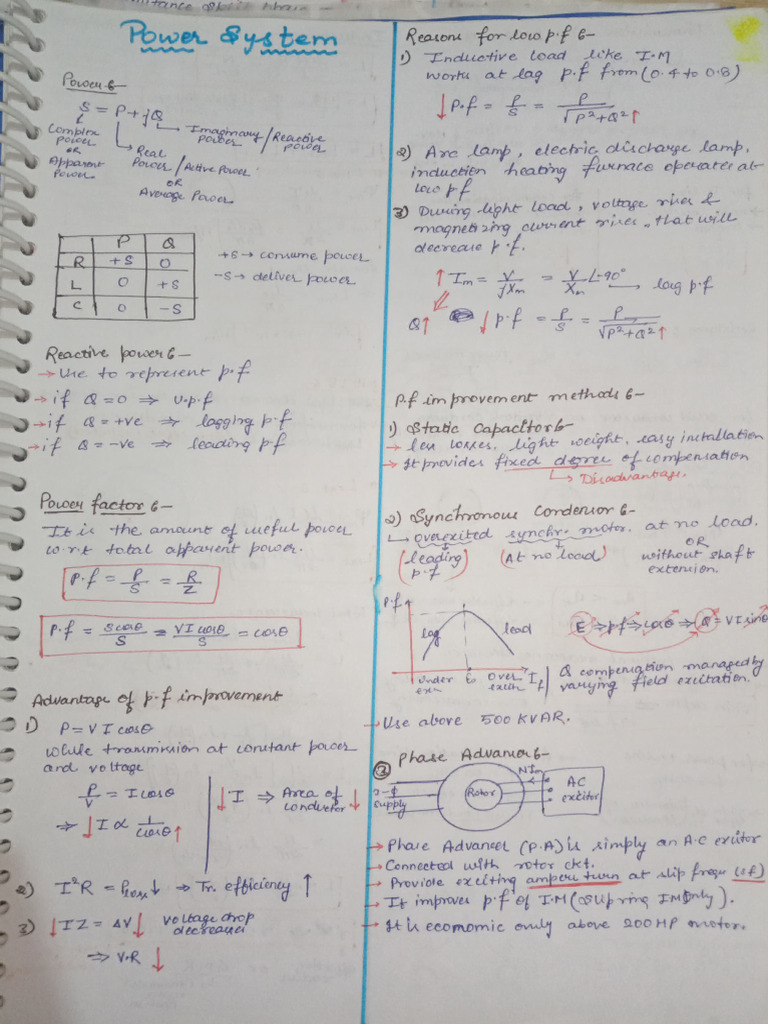 Power System
Power :-
S = P + jQ
Complex Power OR Apparent Power
Real Power / Active Power OR Average Power
Imaginary Power / Reactive power
P Q
R +S 0
L 0 +S
C 0 -S
+S → consume power
-S → deliver power
Reactive power :-
→ Use to represent p.f
→ if Q = 0 ⇒ U.p.f
→ if Q = +ve ⇒ lagging p.f
→ if Q = -ve ⇒ leading p.f
Power factor :-
It is the amount of useful power
w.r.t total apparent power.
P.f = P/S = R/Z
P.f = S cosθ/S = VI cosθ/S = cosθ
Advantage of p.f improvement
1) P = VI cosθ
While transmission at constant power
and voltage
P/V = I cosθ
⇒ ↓ I ∝ 1/cosθ ↑
↓ I ⇒ Area of conductor ↓
2) I²R = Ploss ↓ ⇒ Tr. efficiency ↑
3) ↓ IZ = ΔV ↓ voltage drop decreases
⇒ V.R ↓
Reasons for low p.f :-
1) Inductive load like I.M
works at lag p.f from (0.4 to 0.8)
↓ P.f = P/S = P/√P²+Q² ↑
2) Arc lamp, electric discharge lamp,
induction heating furnace operates at
low pf
3) During light load, voltage rises &
magnetizing current rises, that will
decrease p.f.
↑ Im = V/jXm = V/Xm ∠-90° → lag p.f
Q↑ ↓ p.f = P/S = P/√P²+Q² ↑
P.f improvement methods :-
1) Static Capacitor :-
→ less losses, light weight, easy installation
→ It provides fixed degree of compensation
→ Disadvantage.
2) Synchronous Condensor :-
→ overexited synchr. motor. at no load.
(leading p.f) (At no load) OR without shaft extension.
P.f
lag lead
Under exn Eo Over excitn If
E ⇒ p.f ⇒ cosθ ⇒ Q = VI sinθ
Q compensation managed by
varying field excitation.
→ Use above 500 KVAR.
3) Phase Advancer :-
3-ϕ supply
Rotor
NIm
AC excitor
→ Phase Advancer (P.A) is simply an A.C excitor
→ Connected with rotor ckt.
→ Provide exciting ampere turn at slip frequ (sf)
→ It improves p.f of I.M (Slip ring IM Only).
→ It is ecomomic only above 200 HP motor.